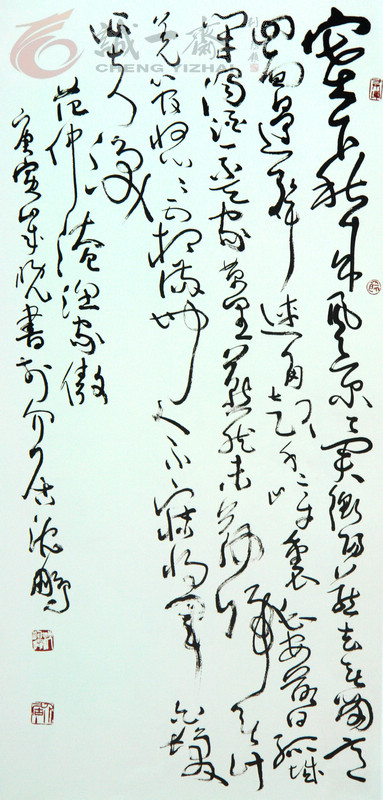 塞下秋来风景异衡阳雁去无留意
四面边声连角起千嶂里长烟落日孤城
闭浊酒一杯家万里燕然未勒归无计
羌管悠〻霜满地人不寐将军白发
征夫泪
范仲淹渔家傲
庚寅岁晚书于介居沈鹏
诚一斋
CHENG YIZHAI